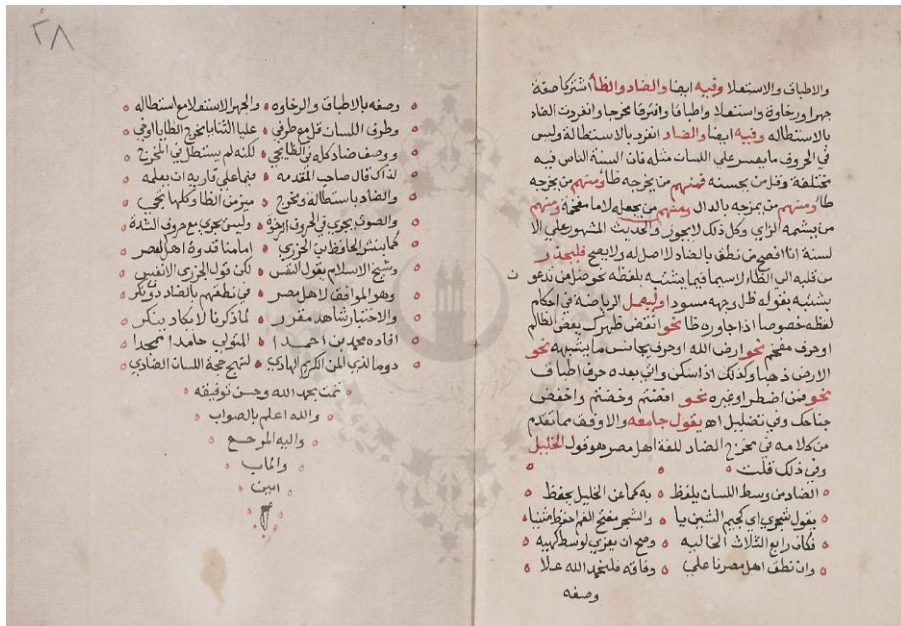 والاطباق والاستعلا وفيه ايضا والضاد والظا اشتركا صفة
جهرا ورخاوة واستعلاء واطباقا وافترقا مخرجا وانفردت الضاد
بالاستطالة وفيه ايضا والضاد انفرد بالاستطالة وليس
في الحروف ما يعسر على اللسان مثله فان السنة الناس فيه
مختلفة وقل من يحسنه فمنهم من يخرجه ظا ومنهم من يخرجه
طا ومنهم من يمزجه بالدال ومنهم من يجعله لاما مفخمة ومنهم
من يشمه الزاي وكل ذلك لا يجوز والحديث المشهور على الا
لسنة انا افصح من نطق بالضاد لا اصل له ولا يصح فليحذر
من قلبه الى الظاء لا سيما فيما يشتبه بلفظه نحو ضل من تدعون
يشتبه بقوله ظل وجهه مسودا وليعمل الرياضة في احكام
لفظه خصوصا اذا جاوره ظا نحو انقض ظهرك يعض الظالم
او حرف مفخم نحو ارض الله او حرف يجانس ما يشبهه نحو
الارض ذهبا وكذلك اذا سكن واتى بعده حرف اطباق
نحو فمن اضطر او غيره نحو افضتم وخضتم واخفض
جناحك وفي تضليل اهـ يقول جامعه والاوفق مما تقدم
من كلامه في مخرج الضاد للغة اهل مصر هو قول الخليل
وفي ذلك قلت
الضاد من وسط اللسان يلفظ به كما عن الخليل يحفظ
يقول شجري اي كجيم الشين يا والشجر مفتح الفم احفظ متنيا
فكان رابع الثلاث الخاليه وصح ان يعزي لوسط كهيه
وان نطق اهل مصرنا على وفاقه فلنحمد الله علا
وصفه
٢٨
وصفه بالاطباق والرخاوه والجهر الاستعلا مع استطاله
وطرف اللسان قل مع طرفي عليا الثنايا مخرج الظايا اوفي
ووصف ضاد كله في الظا يجي لكنه لم يستطل في المخرج
لذاك قال صاحب المقدمه فيما على قاريه ان يعلمه
والضاد باستطالة ومخرج ميز من الظا وكلها تجي
والصوت يجري في الحروف الرخوة وليس يجري مع حروف الشدة
كما بنشر الحافظ بن الجزري امامنا قدوة اهل العصر
وشيخ الاسلام يقول النفس لكن قول الجزري الانفس
وهو الموافق لاهل مصر في نطقهم بالضاد دون نكر
والاختبار شاهد مقرر لما ذكرنا لا يكاد ينكر
افاده محمد بن احمدا المتولي حامدا ممجدا
دوما لذي المن الكريم الهادي لنهج حجة اللسان الضادي
تمت بحمد الله وحسن توفيقه
والله اعلم بالصواب
واليه المرجع
والماب
امين